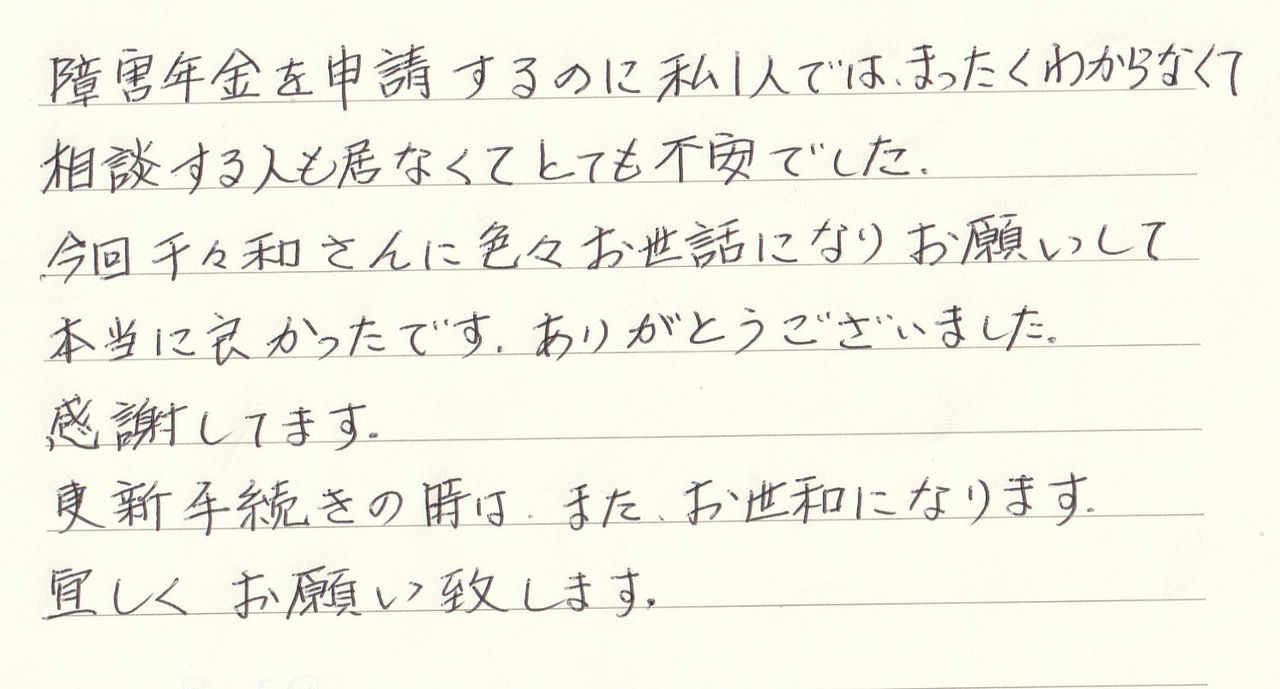 障害年金を申請するのに私1人では、まったくわからなくて
相談する人も居なくてとても不安でした。
今回千々和さんに色々お世話になりお願いして
本当に良かったです。ありがとうございました。
感謝してます。
更新手続きの時は、また、お世和になります。
宜しくお願い致します。